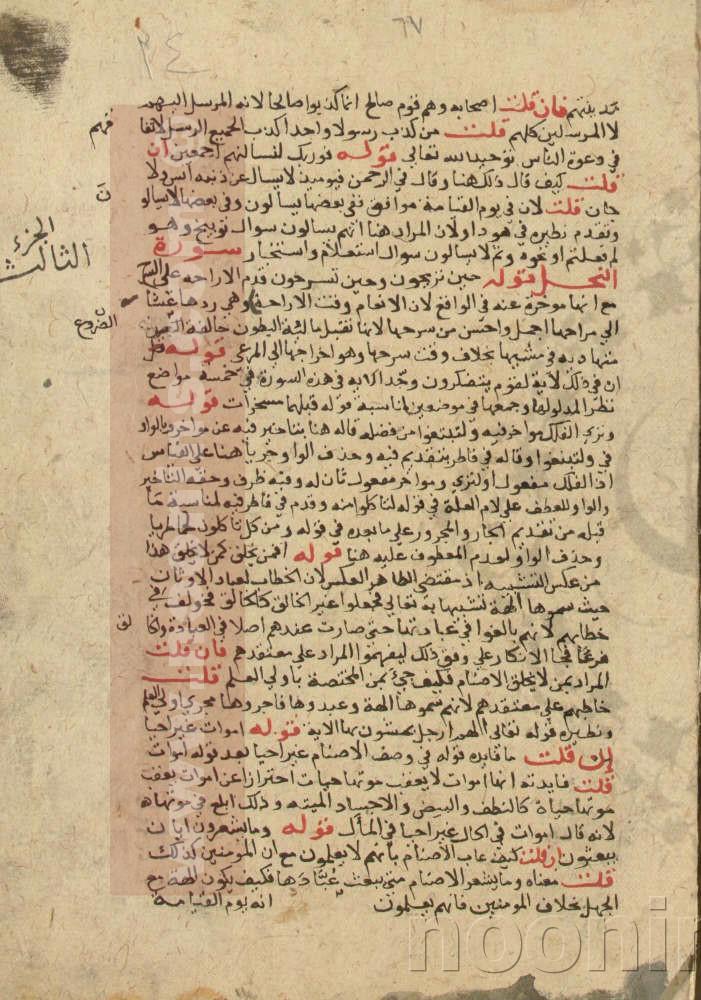 ٦٧
٣٤
مدينتهم فان قلت اصحابه وهم قوم صالح انما كذبوا صالحا لانه المرسل اليهم
لا المرسلين كلهم قلت من كذب رسولا واحدا كذب الجميع الرسل لاتفا
فهم
في دعوة الناس توحيد الله تعالى قوله فوربك لنسألنهم اجمعين ان
قلت كيف قال ذلك هنا وقال في الرحمن فيومئذ لا يسال عن ذنبه انس ولا
جان قلت لان في يوم القيامة مواقف ففي بعضها يسألون وفي بعضها لا يسالو
ن
وتقدم نظيره في هود اولان المراد هنا انهم يسالون سوال توبيخ وهو
لم فعلتم او نحوه وثم لا يسالون سوال استعلام واستخبار سورة
الجزء الثالث
النحل قوله حين تريحون وحين تسرحون قدم الاراحه على السر
مع انها موخرة عنه في الواقع لان الانعام وقت الاراحة وهي ردها عشيا
الى مراحها اجمل واحسن من سرحها لانها تقبل مالئة البطون حافلة
الضروع
متهادية في مشيها بخلاف وقت سرحها وهو اخراجها الى المرعى قوله
ان في ذلك لاية لقوم يتفكرون وحد الاية في هذه السورة في خمسة مواضع
نظرا لمدلولها وجمعها في موضعين لمناسبة قوله قبلهما مسخرات قوله
وترى الفلك مواخر فيه ولتبتغوا من فضله قاله هنا بتاخير فيه عن مواخر وبالواو
في ولتبتغوا وقاله في فاطر بتقديم فيه وحذف الواو جريا هنا على القياس
اذ الفلك مفعول اول لترى ومواخر مفعول ثان له وفيه ظرف وحقه التاخير
والواو للعطف على لام العلة في قوله لتاكلوا منه وقدم في فاطر فيه لمناسبة ما
قبله من تقديم الجار والمجرور على ما بعده في قوله ومن كل تاكلون لحما طريا
وحذف الواو لعدم المعطوف عليه هنا قوله افمن يخلق كمن لا يخلق هذا
من عكس التشبيه اذ مقتضى الظاهر العكس لان الخطاب لعباد الاوثان
حيث سموها الهة تشبيها به تعالى فجعلوا غير الخالق كالخالق فخولف في
خطابهم لانهم بالغوا في عبادتها حتى صارت عندهم اصلا في العبادة والخا
لق
فرعا فجا الانكار على وفق ذلك ليفهموا المراد على معتقدهم فان قلت
المراد بمن لا يخلق الاصنام فكيف جيئ بمن المختصة باولي العلم قلت
خاطبهم على معتقدهم لانهم سموها الهة وعبدوها فاجروها مجرى اولي العلم
ونظيره قوله تعالى الهم ارجل يمشون بها الاية قوله اموات غير احيا
ان قلت ما فايدة قوله في وصف الاصنام غير احيا بعد قوله اموات
قلت فايدته انها اموات لا يعقب موتها حيات احترازا عن اموات يعقب
موتها حياة كالنطف والبيض والاجساد الميته وذلك ابلغ في موتها
لانه قال اموات في الحال غير احيا في المأل قوله وما يشعرون ايان
يبعثون ان قلت كيف عاب الاصنام بانهم لا يعلمون مع ان المؤمنين كذلك
قلت معناه وما يشعر الاصنام متى يبعث عبادها فكيف يكون الهة مع
الجهل بخلاف المومنين فانهم يعلمون انه يوم القيامة
noonir